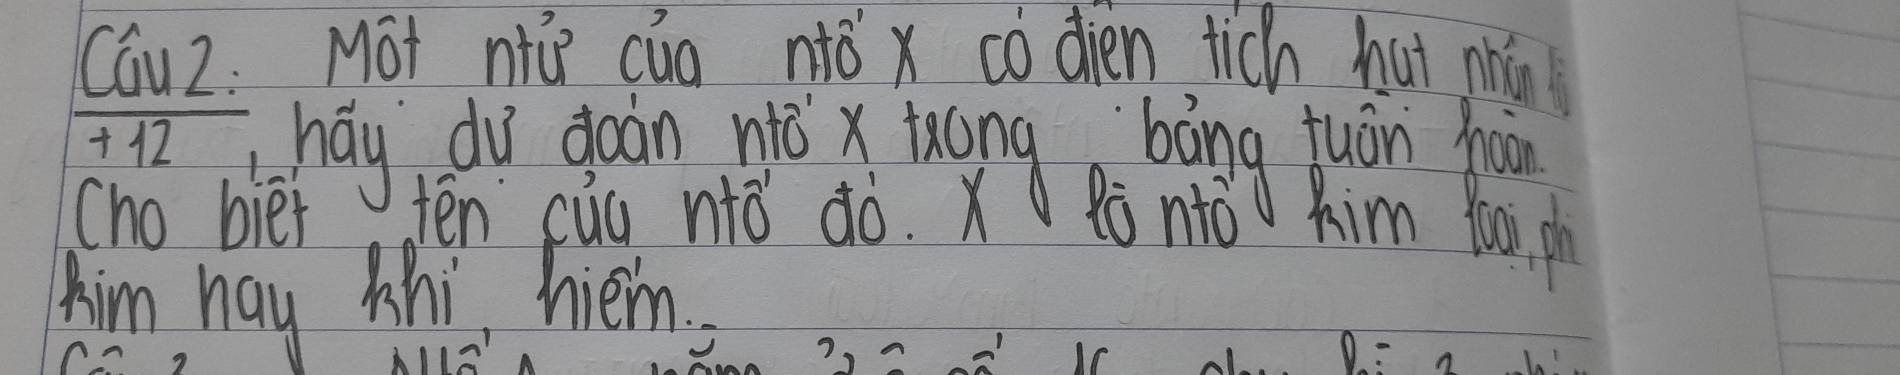 Câu 2: Một ntử của ntố X có điện tích hạt nhân là
+12, hãy dự đoán ntố X trong bảng tuần hoàn.
Cho biết tên của ntố đó. X là ntố kim loại, phi
kim hay khí hiếm.